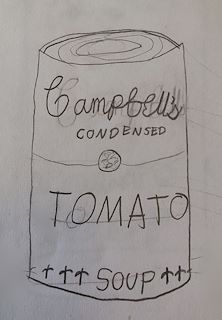 Campbell's
CONDENSED
TOMATO
SOUP